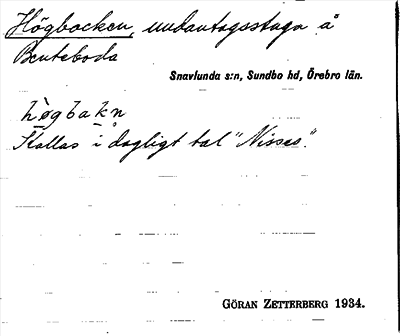 Högbocken, undantagsstuga å
Benteboda
Snavlunda s:n, Sundbo hd, Örebro län.
hø̀gbakn
Kallas i dagligt tal "Nisses."
GÖRAN ZETTERBERG 1934.